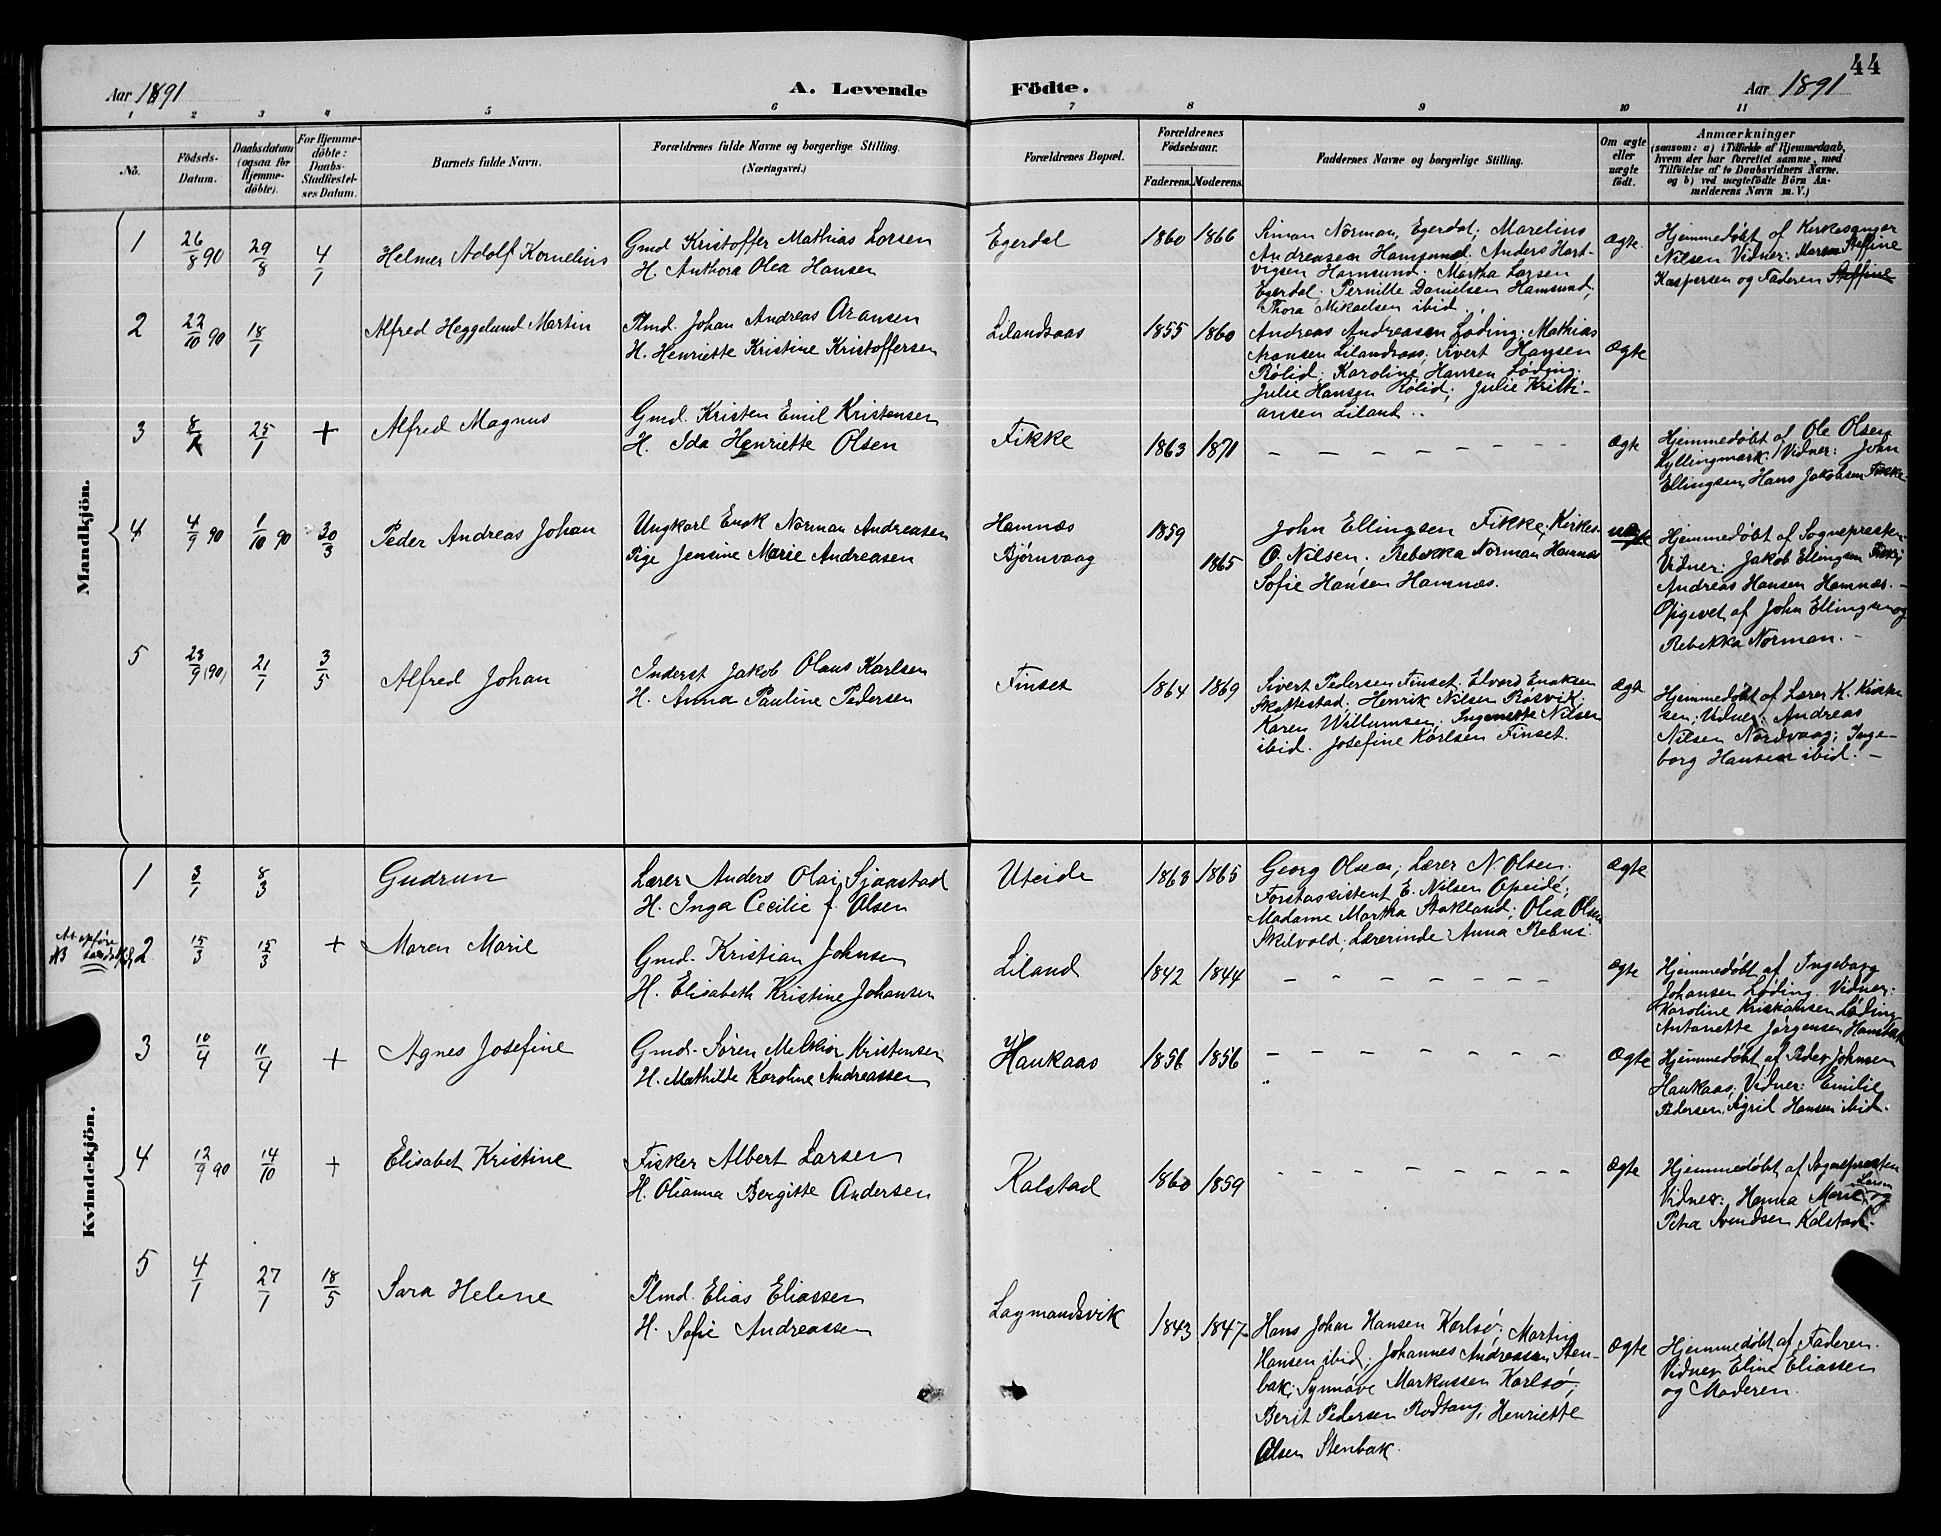 44
Aar 1891
A. Levende
Födte.
Aar 1891
1 2 3 4 5 6 7 8 9 10 11
No.
Födsels-
Datum.
Daabsdatum
(ogsaa for
Hjemme-
döbte).
For Hjemme-
döbte:
Daabs-
Stadfæstel-
ses Datum.
Barnets fulde Navn.
Forældrenes fulde Navne og borgerlige Stilling.
(Næringsvei.)
Forældrenes Bopæl.
Forældrenes
Födselsaar.
Faderens. Moderens.
Faddernes Navne og borgerlige Stilling.
Om ægte
eller
uægte
födt.
Anmærkninger
(saasom: a) i Tilfælde af Hjemmedaab,
hvem der har forrettet samme, med
Tilföielse af to Daabsvidners Navne.
og b) ved uægtefödte Börn An-
melderens Navn m. V.)
Mandkjön.
1
26/8 90
29/8
4/1
Helmer Adolf Kornelius
Gmd Kristoffer Mathias Larsen
H. Anthora Olea Hansen
Egerdal
1860 1866
Simon Norman, Egerdal; Marelius
Andreasen Hamsund. Anders Hart-
vigsen Hamsund. Martha Larsen
Egerdal. Pernille Danielsen Hamsund,
Thora Mikaelsen ibid.
Ægte.
Hjemmedøbt af Kirkesanger
Nilsen Vidner: Maren Steffine
Kaspersen og Faderen Steffine
2
22/10 90
18/1
Alfred Heggelund Martin
Plmd. Johan Andreas Aransen
H. Henriette Kristine Kristoffersen
Lilandsaas
1855 1860
Andreas Andreasen Løding; Mathias
Aransen Lilandsaas; Sivert Hansen
Rølid; Karoline Hansen Løding;
Julie Hansen Rølid; Julie Kristi-
ansen Liland..
Ægte
3
8/1
25/1
+
Alfred Magnus
Gmd. Kristen Emil Kristensen
H. Ida Henriette Olsen
Fikke
1863 1871
– – – – – – – –
Ægte
Hjemmedøbt af Ole Olsen
Kyllingmark. Vidner: John
Ellingsen, Hans Jakobsen Fikke
4
4/9 90
1/10 90
30/3
Peder Andreas Johan
Ungkarl Enok Norman Andreasen
Pige Jensine Marie Andreasen
Hamnæs
Bjørnvaag
1859
1865
John Ellingsen Fikke, Kirkes.
O. Nilsen. Rebekka Norman Hamnæs
Sofie Hansen Hamnæs.
uægte
Hjemmedøbt af Sognepresten
Vidner: Jakob Ellingsen Fikke,
Andreas Hansen Hamnæs. –
Opgivet af John Ellingsen og
Rebekka Norman. –
5
23/9 (90)
21/1
3/5
Alfred Johan
Inderst Jakob Olaus Karlsen
H. Anna Pauline Pedersen
Finset
1864 1869
Sivert Pedersen Finset. Edvard Enoksen
Skottestad; Henrik Nilsen Røsvik,
Karen Willumsen. Ingemette Nilsen
ibid. Josefine Karlsen Finset.
Ægte
Hjemmedøbt af Lærer K. Kristen
sen; Vidner: Andreas
Nilsen Nordvaag; Inge-
borg Hansen ibid. –
Kvindekjön.
1
3/1
8/3
Gudrun
Lærer Anders Olai Sjaastad
H. Inga Cecilie f. Olsen
Uteide
1863 1865
Georg Olsen; Lærer N. Olsen;
Forstassistent E. Nilsen Opeide;
Madame Martha Stokland; Olea Olsen
Skilvold; Lærerinde Anna Rebni.
Ægte
2
15/3
15/3
+
Maren Marie
Gmd. Kristian Johnsen
H. Elisabeth Kristine Johansen
Liland
1842 1844
– – – – – – –
Ægte
Hjemmedøbt af Ingeborg
Johansen Løding. Vidner:
Karoline Kristiansen Løding
Antonette Jørgensen
3
10/4
11/4
+
Agnes Josefine
Gmd. Søren Melkior Kristensen
H. Mathilde Karoline Andreassen
Haukaas
1856 1856
– – – – – – – –
Ægte
Hjemmedøbt af Peder Johnsen
Haukaas; Vidner: Emilie
Pedersen, Sigrid Hansen ibid.
4
12/9 90
14/10
+
Elisabet Kristine
Fisker Albert Larsen
H. Olianna Bergitte Andersen
Kalstad
1860 1859
– – – – – – – –
Ægte
Hjemmedøbt af Sognepresten
Vidner: Hanna Marie Larsen og
Petra Svendsen Kalstad.
5
4/1
27/1
18/5
Sara Helene
Plmd. Elias Eliassen
H. Sofie Andreassen
Lagmandsvik
1843 1847
Hans Johan Hansen Karlsø; Martin
Hansen ibid; Johannes Andreasen Sten-
bak; Synnøve Markussen Karlsø;
Berit Pedersen Rodtang; Henriette
Olsen Stenbak.
Ægte
Hjemmedøbt af Faderen.
Vidner Eline Eliassen
og Moderen.